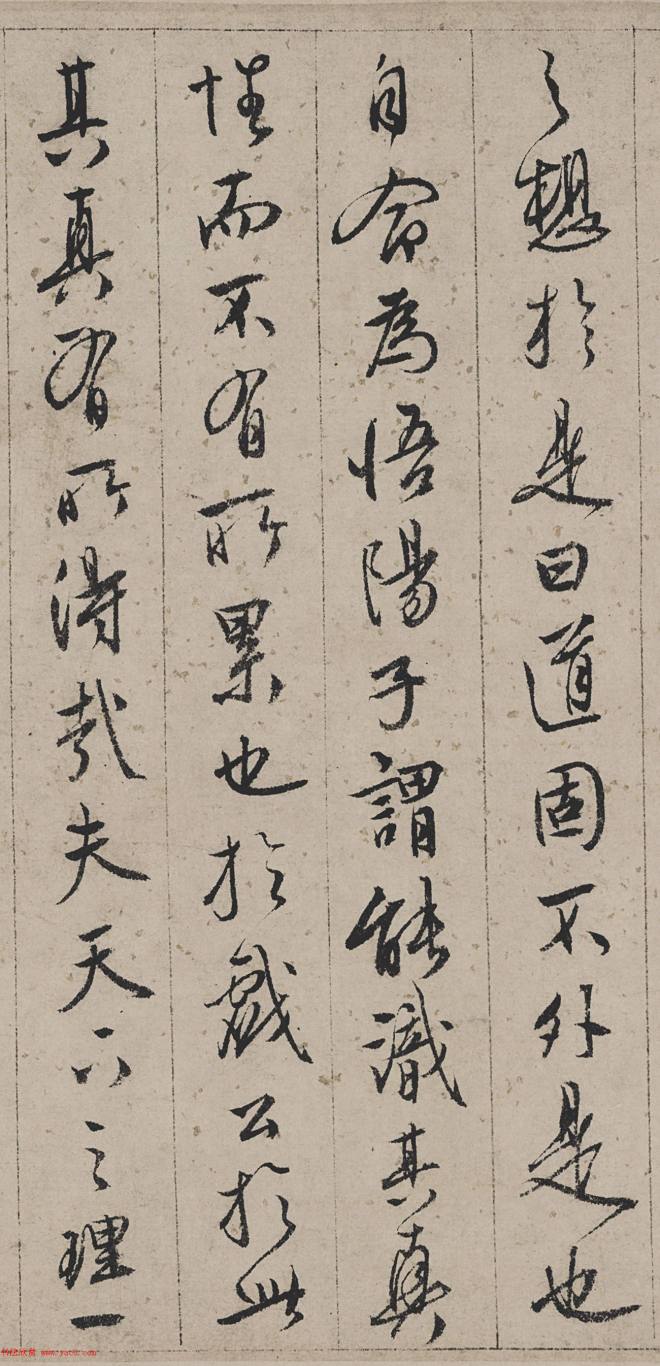 之想於是曰道固不外是也
自命為悟陽子謂能識其真
性而不有所累也於戲公於此
其真有所得哉夫天下之理一
书法欣赏 www.yac8.com